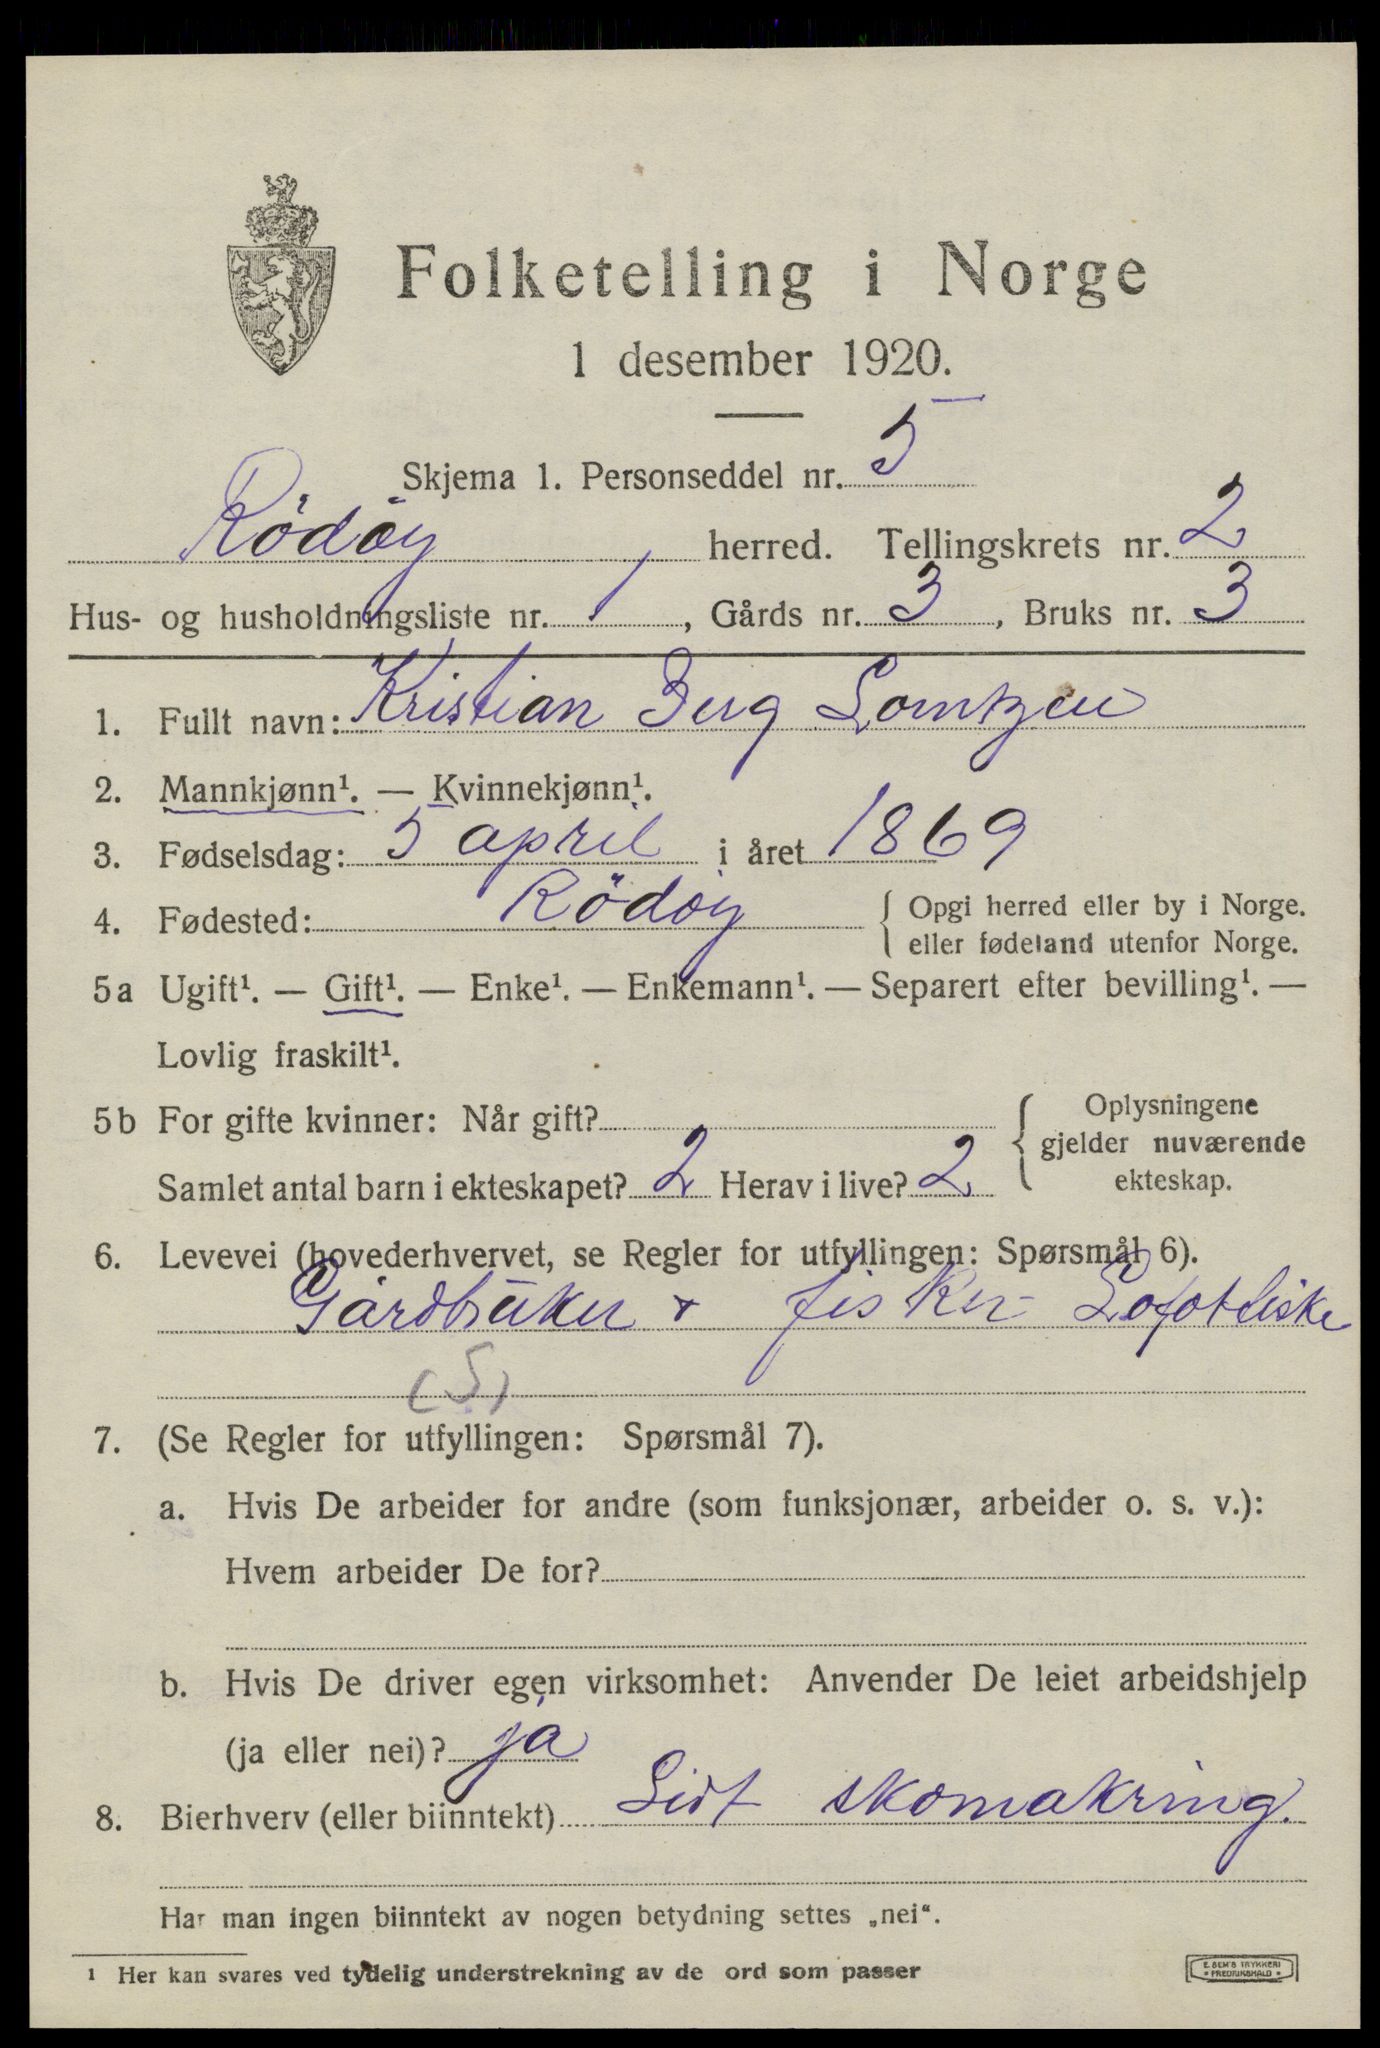 Folketelling i Norge
1 desember 1920.
Skjema 1. Personseddel nr. 5
Rödöy herred. Tellingskrets nr. 2
Hus- og husholdningsliste nr. 1, Gårds nr. 3, Bruks nr. 3
1. Fullt navn: Kristian Berg Lorntzen
2. Mannkjønn¹. — Kvinnekjønn¹.
3. Fødselsdag: 5 april i året 1869
4. Fødested: Rödöy { Opgi herred eller by i Norge.
eller fødeland utenfor Norge.
5a Ugift¹. — Gift¹. — Enke¹. — Enkemann¹. — Separert efter bevilling¹. —
Lovlig fraskilt¹.
5b For gifte kvinner: Når gift? { Oplysningene
gjelder nuværende
Samlet antal barn i ekteskapet? 2 Herav i live? 2 ekteskap.
6. Levevei (hovederhvervet, se Regler for utfyllingen: Spørsmål 6).
Gårdbruker + fisker Lofotfiske
(S)
7. (Se Regler for utfyllingen: Spørsmål 7).
a. Hvis De arbeider for andre (som funksjonær, arbeider o. s. v.):
Hvem arbeider De for?
b. Hvis De driver egen virksomhet: Anvender De leiet arbeidshjelp
(ja eller nei)? ja
8. Bierhverv (eller biinntekt) Lidt skomakring.
Har man ingen biinntekt av nogen betydning settes „nei“.
¹ Her kan svares ved tydelig understrekning av de ord som passer
E. SEM'S TRYKKERI
* FREDRIKSHALD *